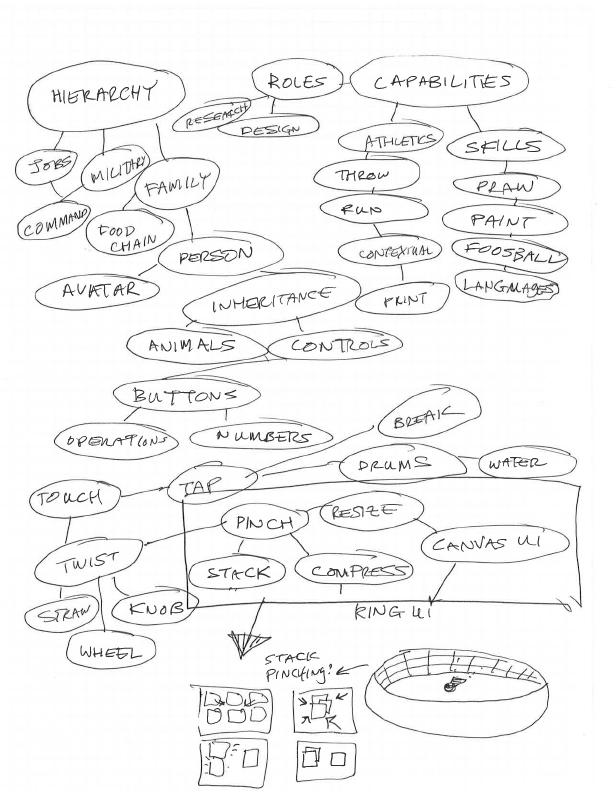 HIERARCHY
ROLES
CAPABILITIES
RESEARCH
DESIGN
ATHLETICS
SKILLS
JOBS
MILITARY
FAMILY
THROW
DRAW
COMMAND
FOOD
CHAIN
RUN
PAINT
PERSON
CONTEXTUAL
FOOSBALL
AVATAR
INHERITANCE
PRINT
LANGUAGES
ANIMALS
CONTROLS
BUTTONS
OPERATIONS
NUMBERS
BREAK
DRUMS
WATER
TOUCH
TAP
PINCH
RESIZE
CANVAS UI
TWIST
STACK
COMPRESS
STRAW
KNOB
RING UI
WHEEL
STACK
PINCHING!